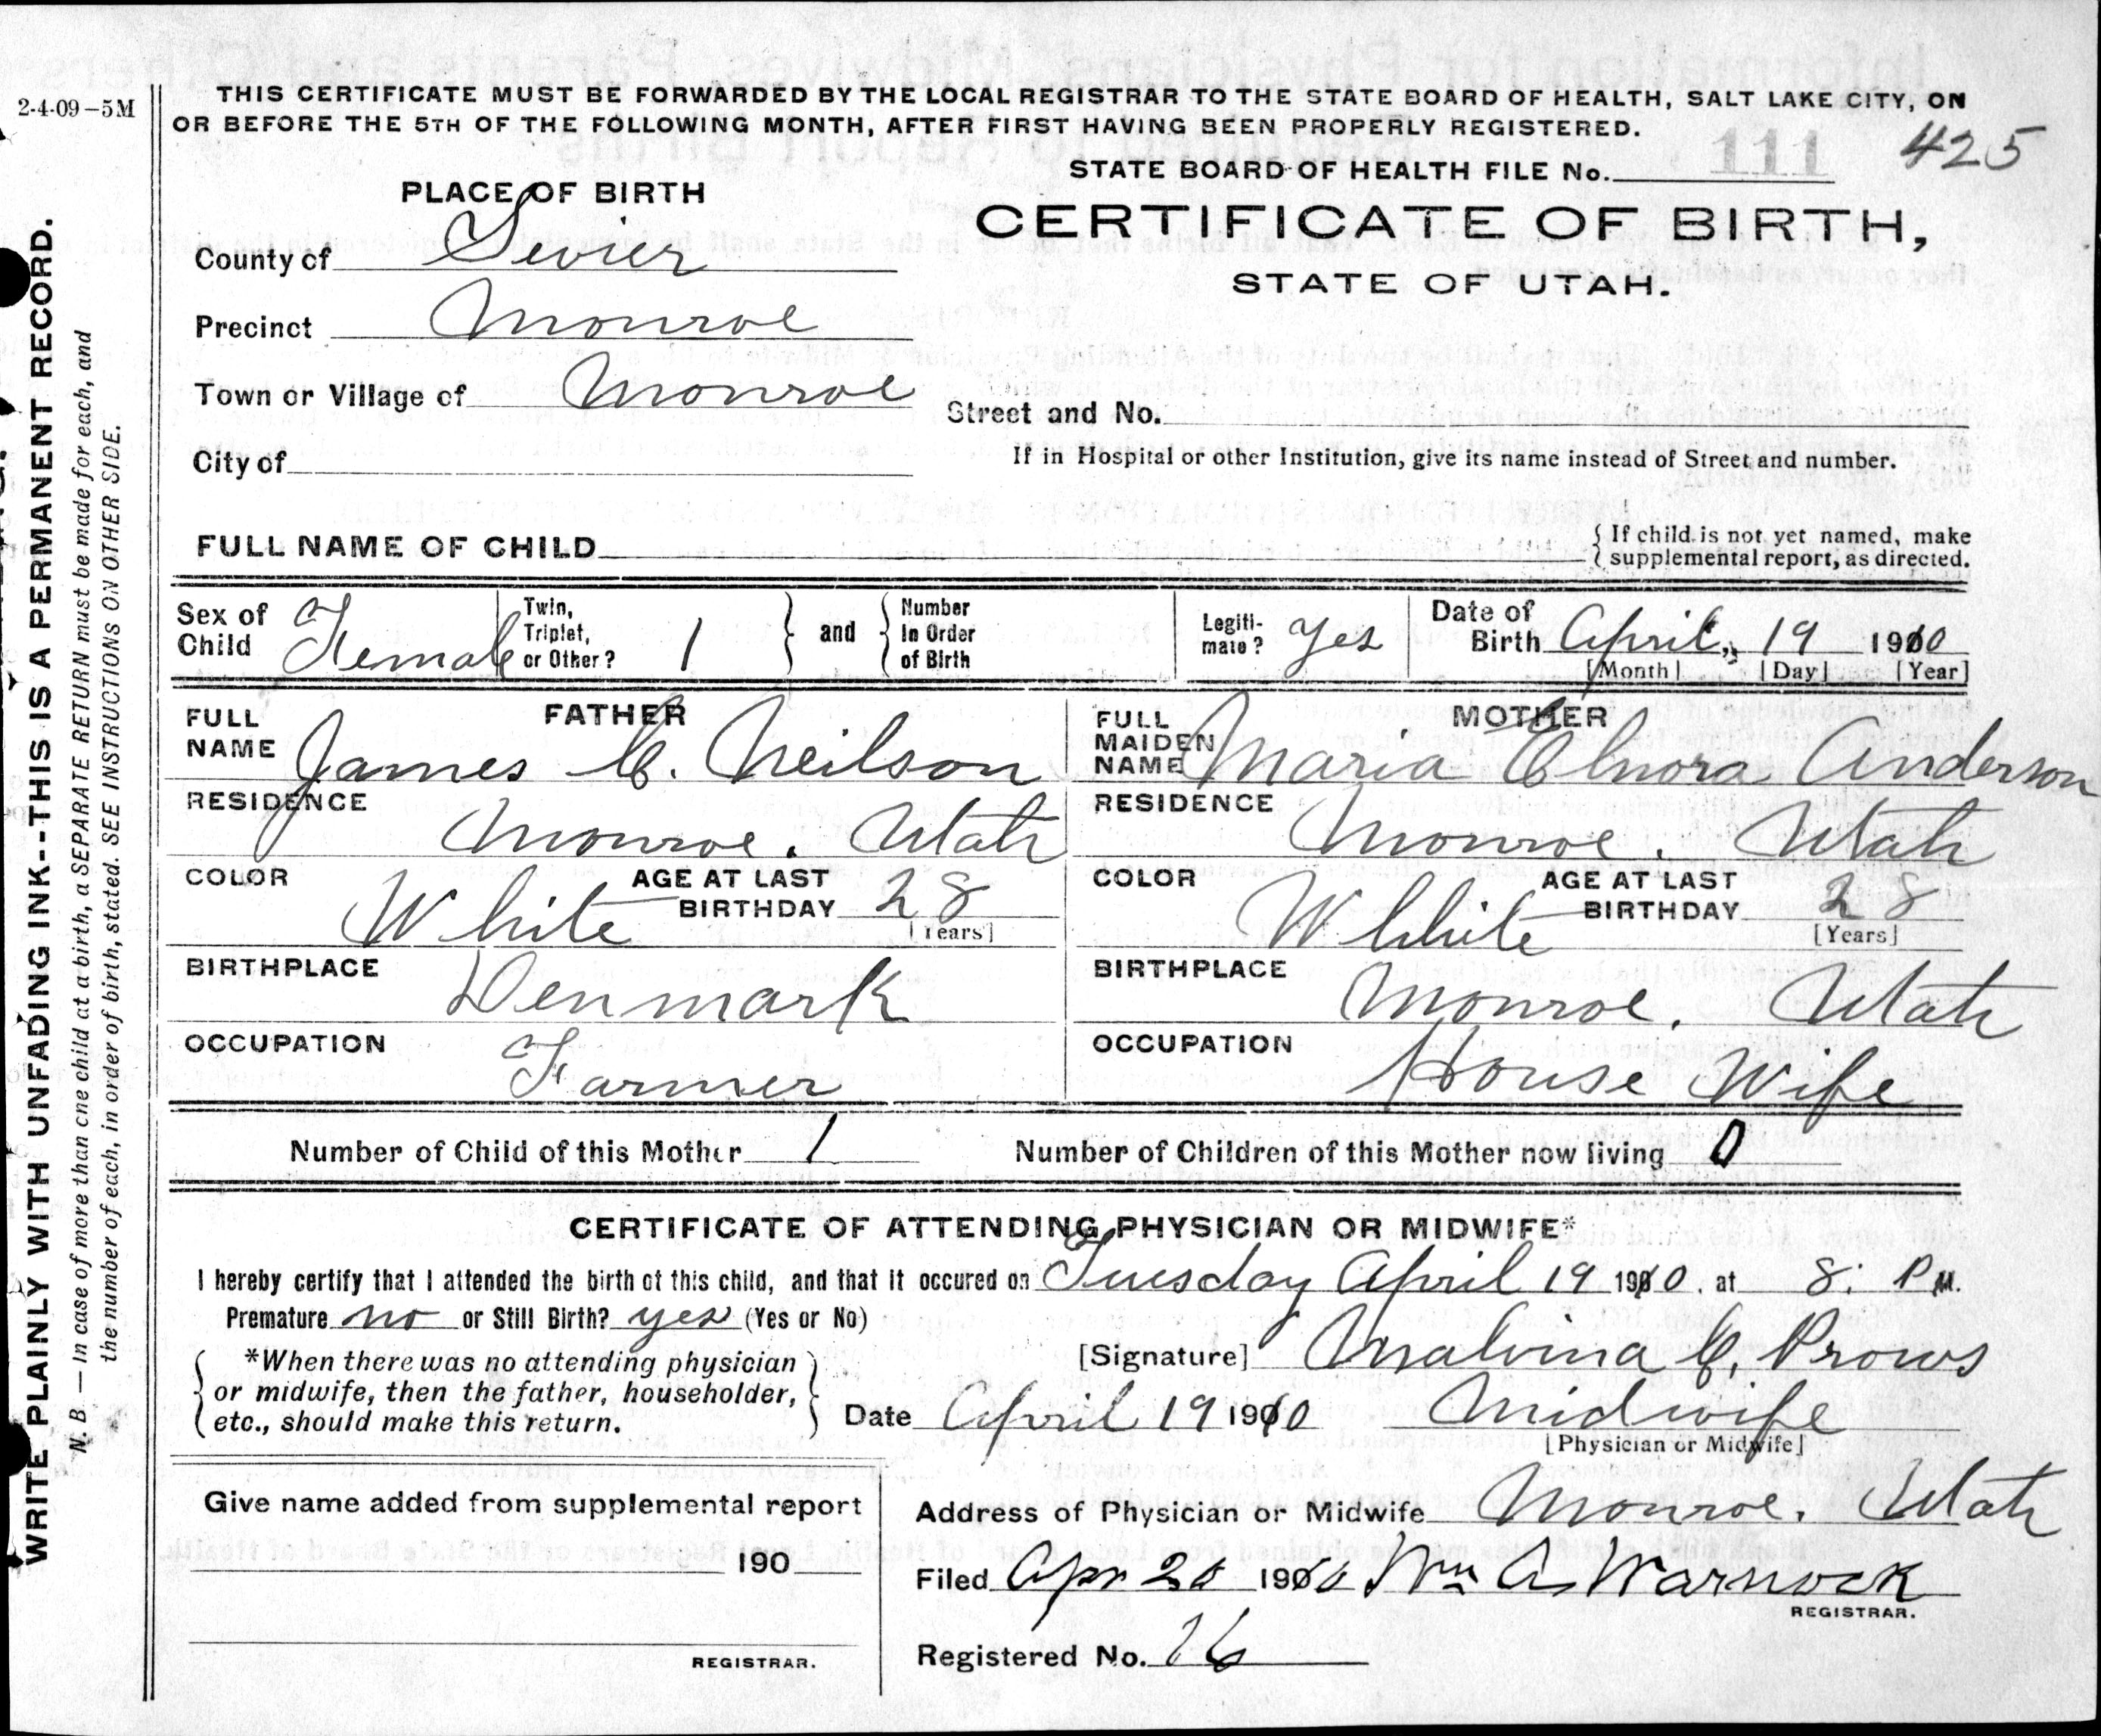 2-4-09-5M
THIS CERTIFICATE MUST BE FORWARDED BY THE LOCAL REGISTRAR TO THE STATE BOARD OF HEALTH, SALT LAKE CITY, ON
OR BEFORE THE 5TH OF THE FOLLOWING MONTH, AFTER FIRST HAVING BEEN PROPERLY REGISTERED.
STATE BOARD OF HEALTH FILE No. 111 425
PLACE OF BIRTH
CERTIFICATE OF BIRTH,
STATE OF UTAH.
County of Sevier
Precinct Monroe
Town or Village of Monroe
Street and No.
City of
If in Hospital or other Institution, give its name instead of Street and number.
FULL NAME OF CHILD
{ If child is not yet named, make
supplemental report, as directed.
Sex of Child Female
Twin, Triplet, or Other? 1 } and { Number In Order of Birth
Legiti-mate? Yes
Date of Birth April, 19 1910
[Month] [Day] [Year]
FATHER
FULL NAME James C. Neilson
RESIDENCE
Monroe. Utah
COLOR White AGE AT LAST BIRTHDAY 28
[Years]
BIRTHPLACE
Denmark
OCCUPATION
Farmer
MOTHER
FULL MAIDEN NAME Maria Elnora Anderson
RESIDENCE
Monroe. Utah
COLOR White AGE AT LAST BIRTHDAY 28
[Years]
BIRTHPLACE
Monroe. Utah
OCCUPATION
House Wife
Number of Child of this Mother 1 Number of Children of this Mother now living 0
CERTIFICATE OF ATTENDING PHYSICIAN OR MIDWIFE*
I hereby certify that I attended the birth of this child, and that it occured on Tuesday April 19 1910. at 8: P M.
Premature no or Still Birth? yes (Yes or No)
*When there was no attending physician
or midwife, then the father, householder,
etc., should make this return.
[Signature] Malvina C. Prows
Date April 19 1910 Midwife
[Physician or Midwife]
Give name added from supplemental report
190
REGISTRAR.
Address of Physician or Midwife Monroe. Utah
Filed Apr 20 1910 Wm A Warnock
REGISTRAR.
Registered No. 16
WRITE PLAINLY WITH UNFADING INK--THIS IS A PERMANENT RECORD.
N. B. — In case of more than one child at a birth, a SEPARATE RETURN must be made for each, and
the number of each, in order of birth, stated. SEE INSTRUCTIONS ON OTHER SIDE.